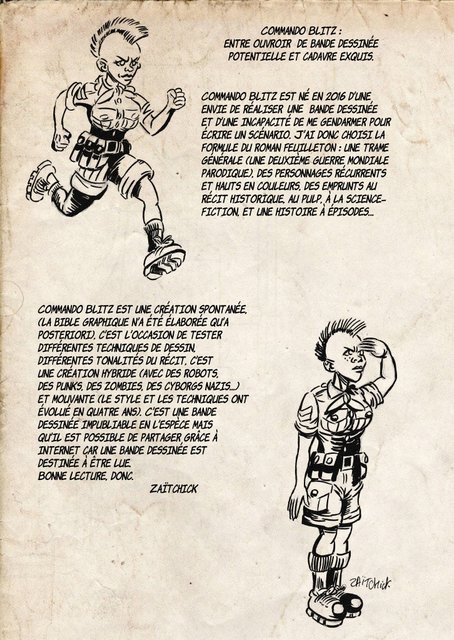 COMMANDO BLITZ :
ENTRE OUVROIR DE BANDE DESSINÉE
POTENTIELLE ET CADAVRE EXQUIS.
COMMANDO BLITZ EST NÉ EN 2016 D'UNE
ENVIE DE RÉALISER UNE BANDE DESSINÉE
ET D'UNE INCAPACITÉ DE ME GENDARMER POUR
ÉCRIRE UN SCÉNARIO. J'AI DONC CHOISI LA
FORMULE DU ROMAN FEUILLETON : UNE TRAME
GÉNÉRALE (UNE DEUXIÈME GUERRE MONDIALE
PARODIQUE), DES PERSONNAGES RÉCURRENTS
ET HAUTS EN COULEURS, DES EMPRUNTS AU
RÉCIT HISTORIQUE, AU PULP, À LA SCIENCE-
FICTION, ET UNE HISTOIRE À ÉPISODES...
COMMANDO BLITZ EST UNE CRÉATION SPONTANÉE,
(LA BIBLE GRAPHIQUE N'A ÉTÉ ÉLABORÉE QU'A
POSTERIORI), C'EST L'OCCASION DE TESTER
DIFFÉRENTES TECHNIQUES DE DESSIN,
DIFFÉRENTES TONALITÉS DU RÉCIT, C'EST
UNE CRÉATION HYBRIDE (AVEC DES ROBOTS,
DES PUNKS, DES ZOMBIES, DES CYBORGS NAZIS...)
ET MOUVANTE (LE STYLE ET LES TECHNIQUES ONT
ÉVOLUÉ EN QUATRE ANS). C'EST UNE BANDE
DESSINÉE IMPUBLIABLE EN L'ESPÈCE MAIS
QU'IL EST POSSIBLE DE PARTAGER GRÂCE À
INTERNET CAR UNE BANDE DESSINÉE EST
DESTINÉE À ÊTRE LUE.
BONNE LECTURE, DONC.
ZAÏTCHICK
ZAÏTCHICK